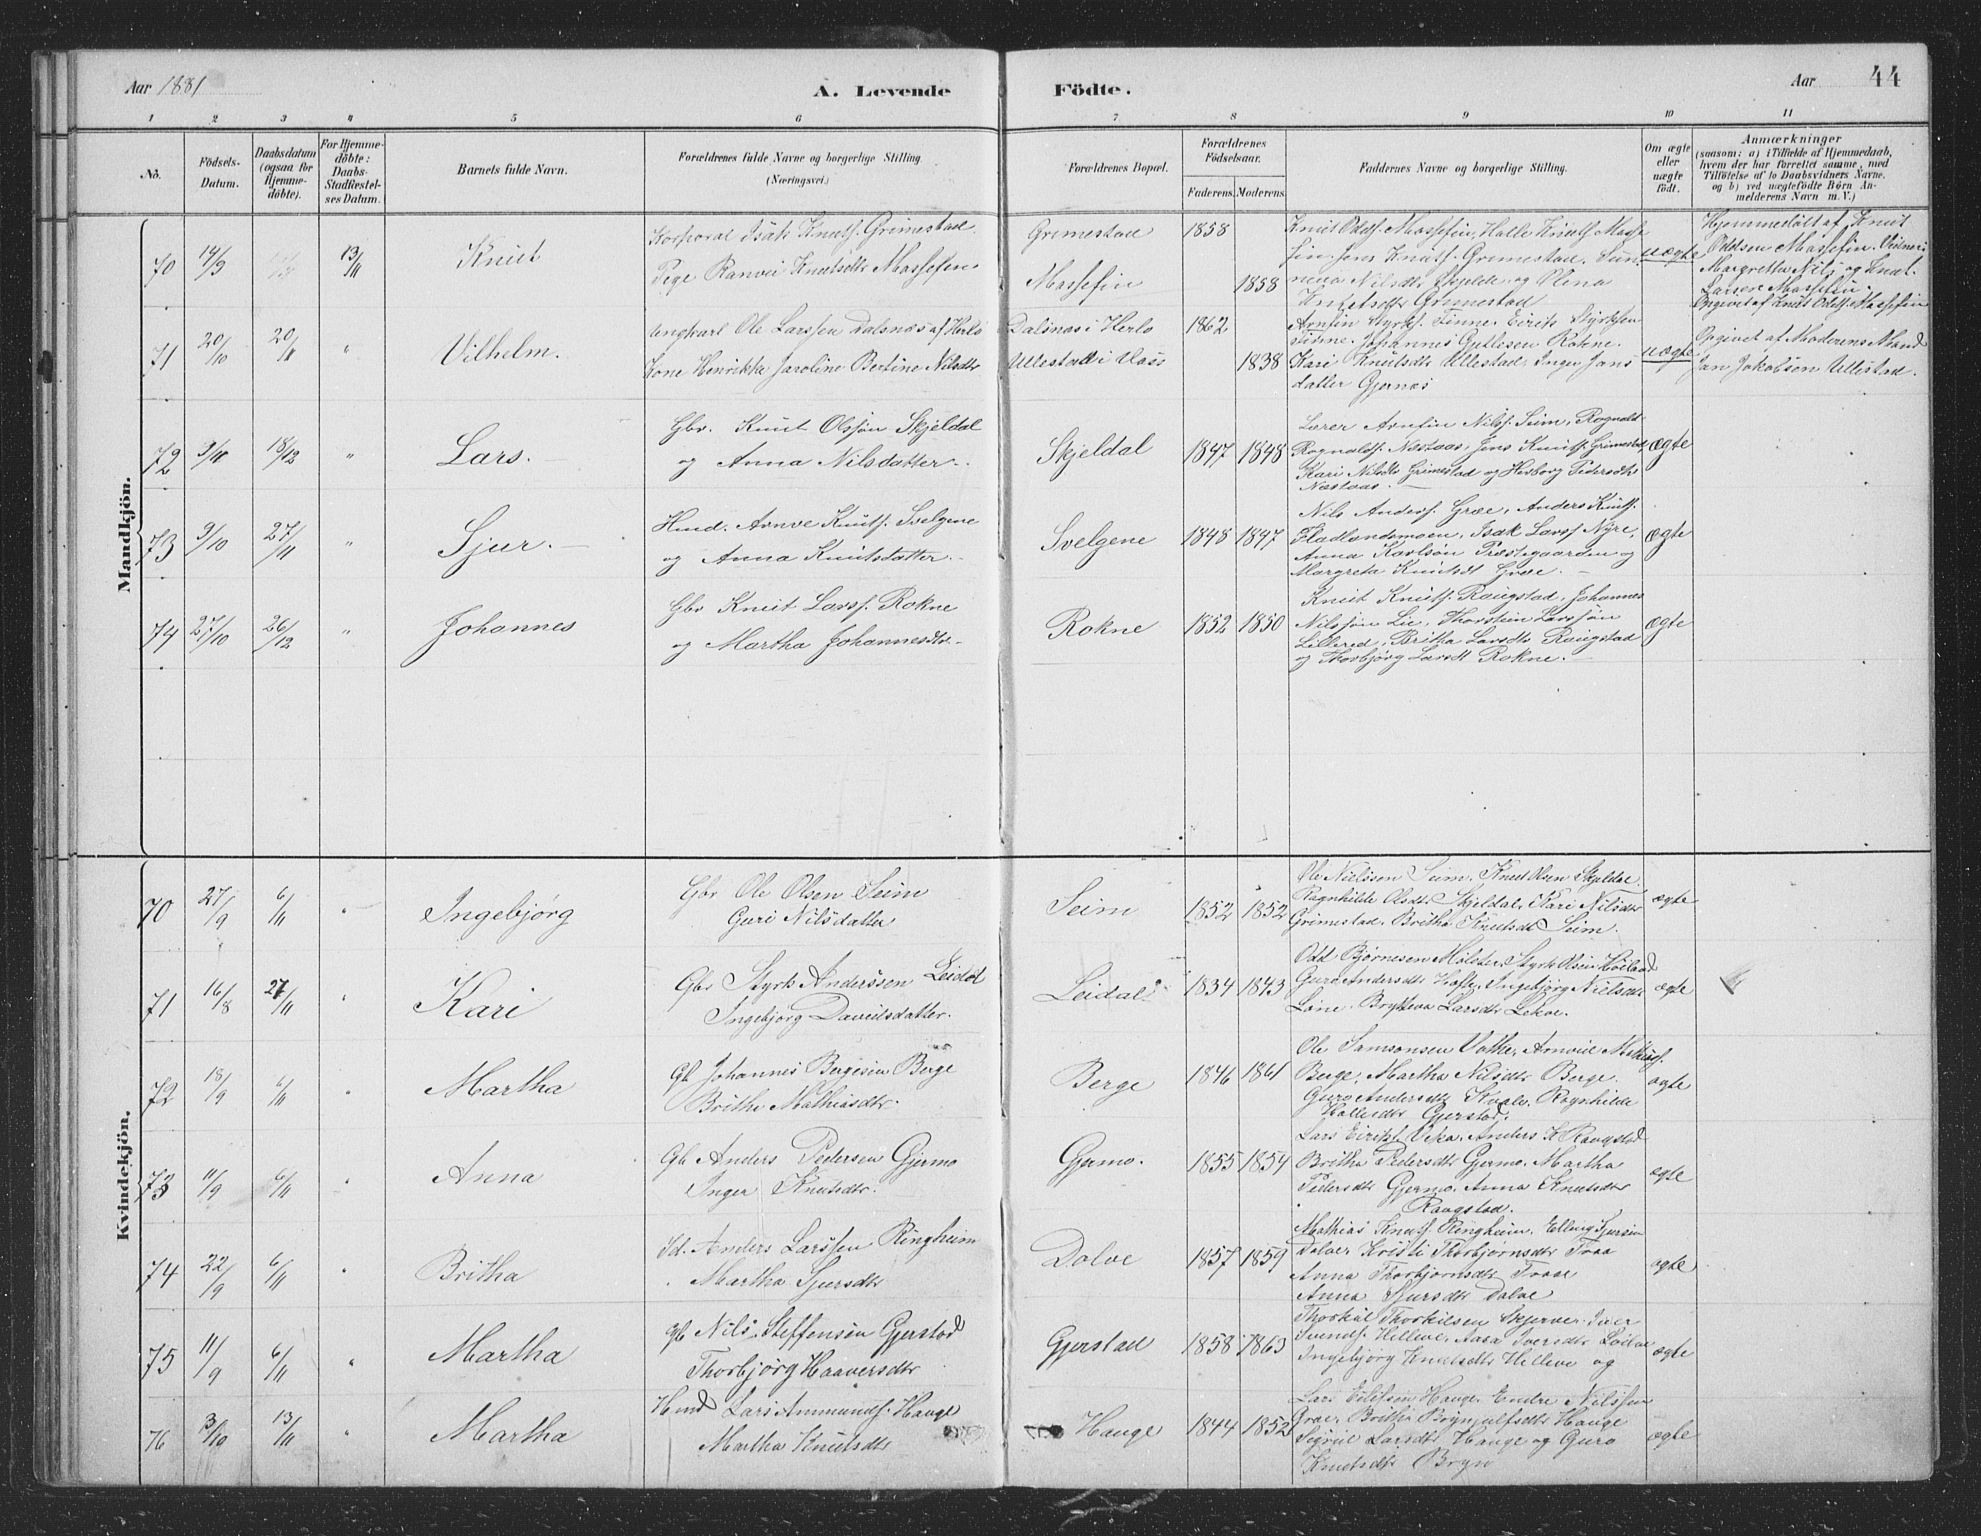 Aar 1881 A. Levende Födte. Aar 44
1 2 3 4 5 6 7 8 9 10 11
No. Födsels-Datum. Daabsdatum (ogsaa for Hjemmedöbte). For Hjemmedöbte: Daabs-Stadfæstelses Datum. Barnets fulde Navn. Forældrenes fulde Navne og borgerlige Stilling. (Næringsvei.) Forældrenes Bopæl. Forældrenes Födselsaar. Faderens. Moderens. Faddernes Navne og borgerlige Stilling. Om ægte eller uægte födt. Anmærkninger (saasom: a) i Tilfælde af Hjemmedaab, hvem der har forrettet samme, med Tilföielse af to Daabsvidners Navne. og b) ved uægtefödte Börn Anmelderens Navn m. V.)
Mandkjön.
70 14/9 13/11 Knut Korporal Isak Knuts. Grimestad Grimestad 1858 Knut Odds. Massefin, Halle Knuts. Masse
Pige Ranvei Knutsdtr Massefin Massefin 1858 fin, Jens Knuts. Grimestad, Sun
nena Nilsdtr Skjelde og Olena
Knutsdtr Grimestad
uægte Hjemmedöbt af Knut
Oddsen Massefin. Vidner:
Margretha Nils og Knut
Larsen Massefin.
Opgivet af Knut Odds. Massefin
71 20/10 20/11 " Vilhelm. Ungkarl Ole Larssen Dalsnes af Herlö Dalsnes i Herlö 1862 Arnfin Styrks. Finne. Eirik Styrksen
Kone Henrikke Jaroline Bertine Nilsdtr Ullestad i Voss 1838 Finne. Johannes Gullesen Rokne.
Kari Knutsdtr Ullestad, Inger Jans
datter Gjernes
uægte Opgivet af Moderens Mand
Jan Jakobsen Ullestad.
72 3/11 18/12 " Lars. Gbr. Knut Olssön Skjeldal
og Anna Nilsdatter. Skjeldal 1847 1848 Lærer Arnfin Nils. Seim, Rognald
Rognalds. Næstaas, Jens Knuts. Grimestad
Kari Nilsdtr Grimestad og Herborg Pedersdtr
Næstaas. ægte
73 3/10 27/11 " Sjur. Husmd. Arnve Knuts. Svelgene
og Anna Knutsdatter. Svelgene 1848 1847 Nils Anders. Græe, Anders Knuts.
Fladlandsmoen, Isak Lars. Nyre,
Anna Karlsön Præstegaarden og
Margreta Knutsdt Græe. ægte
74 27/10 26/12 " Johannes Gbr Knut Lars. Rokne
og Martha Johannesdtr. Rokne 1852 1850 Knut Knuts. Raugstad, Johannes
Nilssön Lie, Thorstein Larssön
Lillered, Britha Larsdtr Raugstad
og Thorbjörg Larsdt Rokne. ægte
Kvindekjön.
70 27/9 6/11 " Ingebjörg Gbr Ole Olsen Seim
Guri Nilsdatter Seim 1852 1852 Ole Nielssen Seim, Knut Olsen Skjeldal
Ragnhilde Olsdtr Skjeldal, Kari Nilsdtr
Grimestad, Britha Knutsdtr Seim. ægte
71 16/8 27/11 " Kari Gbr Styrk Anderssen Leidal
Ingebjörg Davidsdatter. Leidal 1834 1843 Odd Bjørnesen Mølster, Styrk Olsen
Guro Andersdtr Hæfte, Ingebjörg Nielsdtr
Löne. Bryteva Larsdtr Lekve. ægte
72 18/9 6/11 " Martha Gb Johannes Bergesen Berge
Brithe Mathiasdtr. Berge 1846 1861 Ole Samsonsen Vathe, Arnvid
Berge, Martha Nilsdtr Berge.
Guro Andersdtr Kvale, Ragnhilde
Hallesdtr Gjerstad. ægte
73 11/9 6/11 " Anna Gb Anders Pedersen Gjermo
Inger Knutsdtr. Gjermo. 1855 1854 Lars Eiriks. Veka, Anders K Raugstad
Britha Pedersdtr Gjermo, Martha
Pedersdtr Gjermo, Anna Knutsdtr
Raugstad. ægte
74 22/9 6/11 " Britha Id. Anders Larssen Ringheim
Martha Sjursdtr Dolve 1857 1859 Mathias Knuts. Ringheim, Elling Sjursen
Dolve, Kristi Thorbjørnsdtr Traa
Anna Thorbjørnsdtr Traae
Anna Sjursdtr Dolve ægte
75 11/9 6/11 " Martha Gb Nils Steffensen Gjerstad
Thorbjörg Haaversdtr Gjerstad 1858 1863 Thorkiel Thorkilsen Skjerve, Iver
Svends. Helleve, Aasa Iversdtr
Ingebjörg Knutsdtr Helleve og ægte
76 3/10 13/11 " Martha Husmd Lars Ammunds. Hauge
Martha Knutsdtr Hauge 1844 1852 Lars Eilefsen Hauge, Endre Nilssen
Græe, Britha Brynjulfsdtr Hauge
Sigrid Larsdtr Hauge og Guro
Knutsdtr Bryn ægte